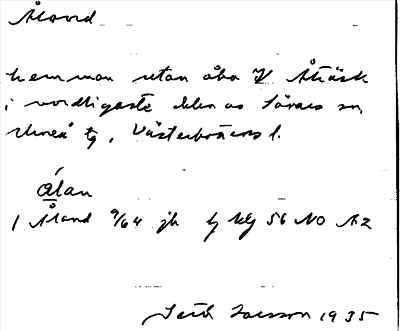 Åland
hemman utan åbo V Åträsk
i nordligaste delen av Sävars sn,
Umeå tg, Västerbottens l.
ålan
1 Åland 9/64 jb bg 56 NO A2
1935